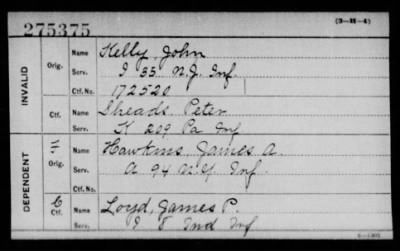 275375
(3-H-4)
INVALID
Orig.
Name Kelly, John
Serv. I 35 N.J. Inf.
Ctf. No. 172520
Ctf.
Name Sheads, Peter
Serv. K 209 Pa Inf
DEPENDENT
Orig.
Name Hawkins, James A.
Serv. A 94 N.Y. Inf.
Ctf. No.
Ctf.
Name Loyd, James P.
Serv. I 8 Ind Inf